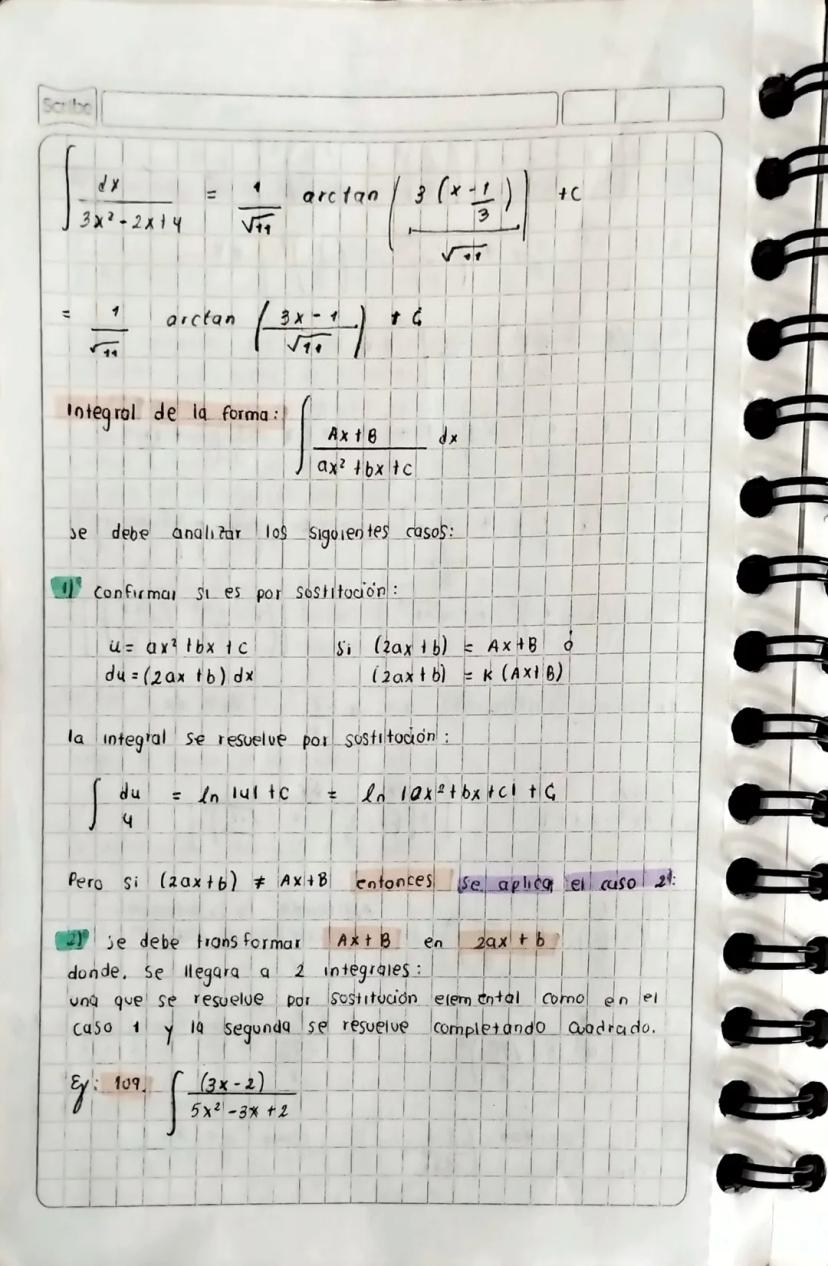 Scribe
∫ dx / (3x² - 2x + 4) = 1/√11 arctan (3(x - 1/3) / √11) + C
= 1/√11 arctan ((3x - 1)/√11) + C
Integral de la forma: ∫ (Ax + B) / (ax² + bx + c) dx
se debe analizar los siguientes casos:
1) Confirmar si es por sostitución:
u = ax² + bx + c Si (2ax + b) = Ax + B ó
du = (2ax + b) dx (2ax + b) = K (Ax + B)
la integral se resuelve por sostitución:
∫ du/u = ln |u| + C = ln |ax² + bx + c| + C
Pero si (2ax + b) ≠ Ax + B entonces se aplica el caso 2:
2) se debe transformar Ax + B en 2ax + b
donde, se llegara a 2 integrales:
una que se resuelve por sostitución elemental como en el
caso 1 y la segunda se resuelve completando cuadrado.
Ej: 109. ∫ (3x - 2) / (5x² - 3x + 2)